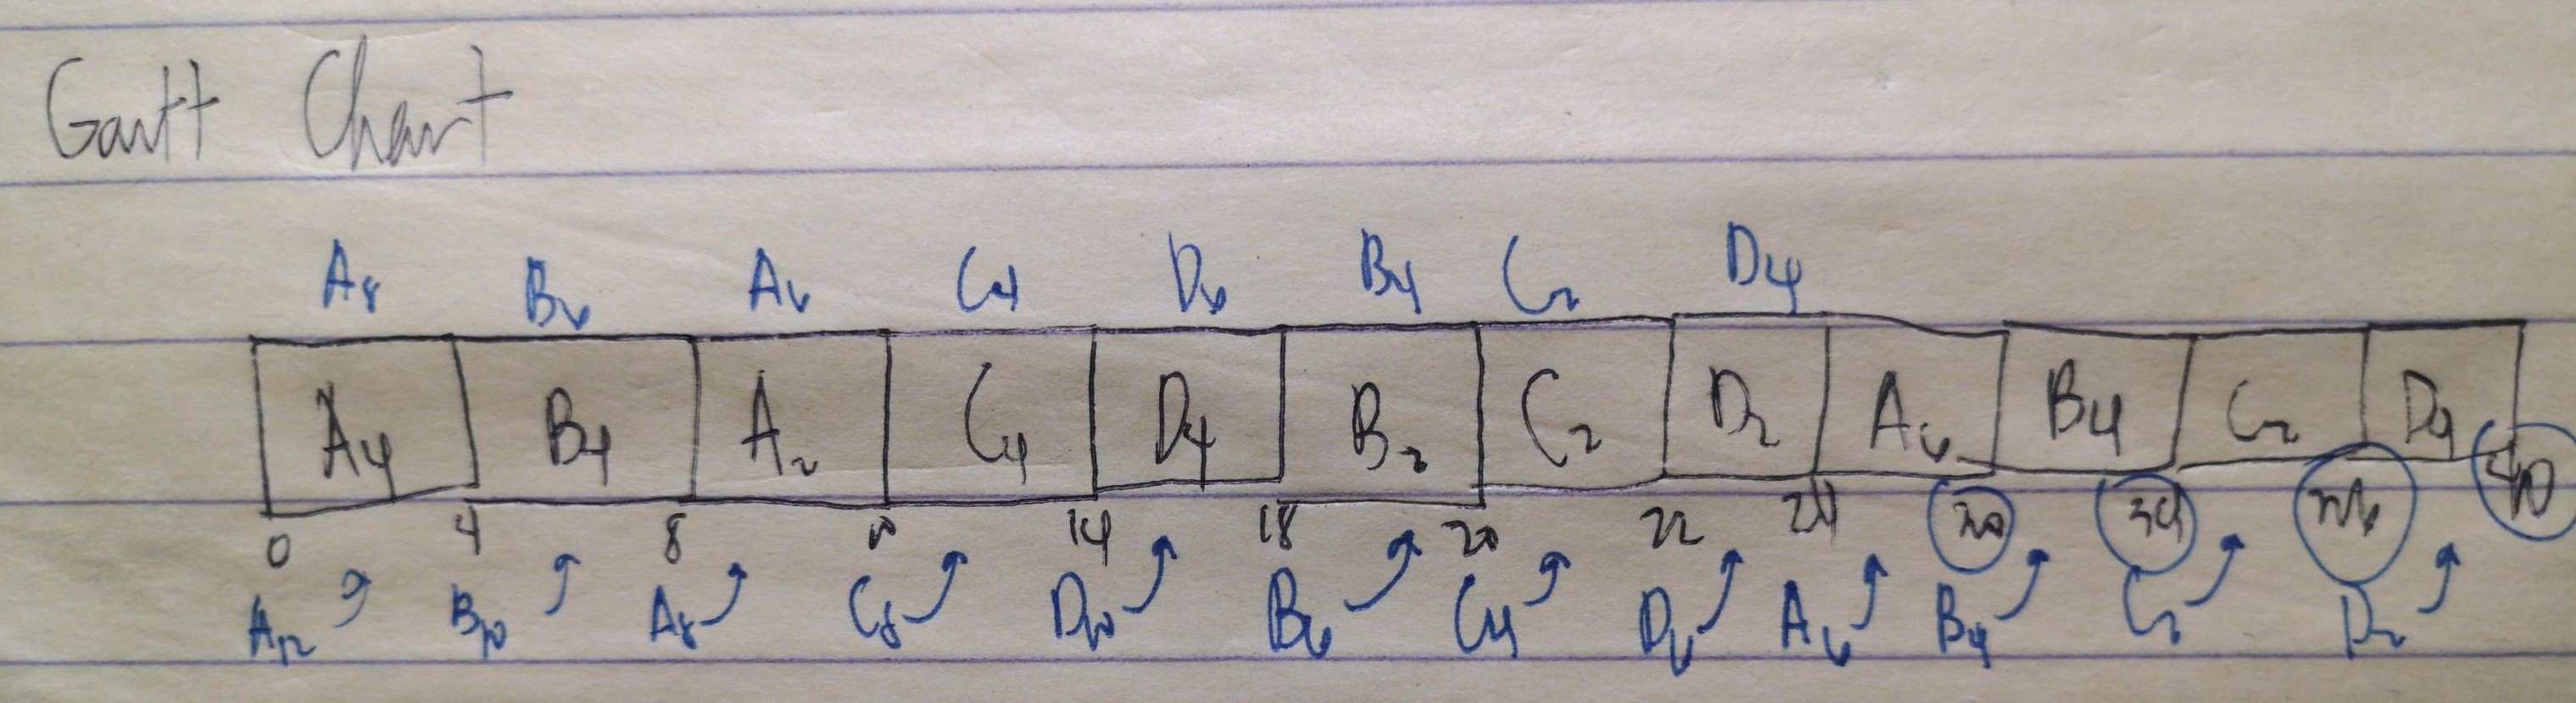 Gantt Chart
A8 B6 A6 C4 D6 B4 C2 D4
A4 B4 A2 C4 D4 B2 C2 D2 A6 B4 C2 D4
0 4 8 10 14 18 20 22 24 30 34 36 40
A12 B10 A8 C8 D10 B6 C4 D6 A6 B4 C2